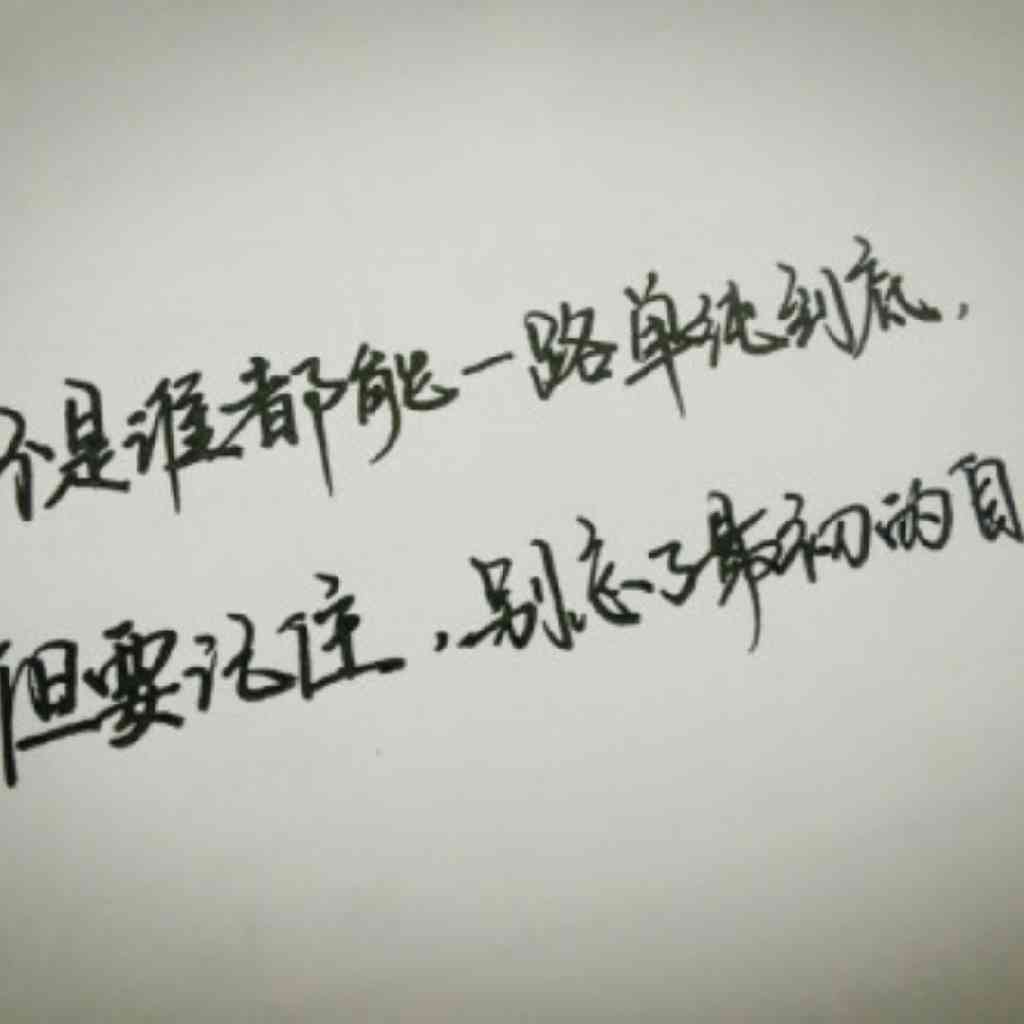 不是谁都能一路单纯到底，
但要记住，别忘了最初的自